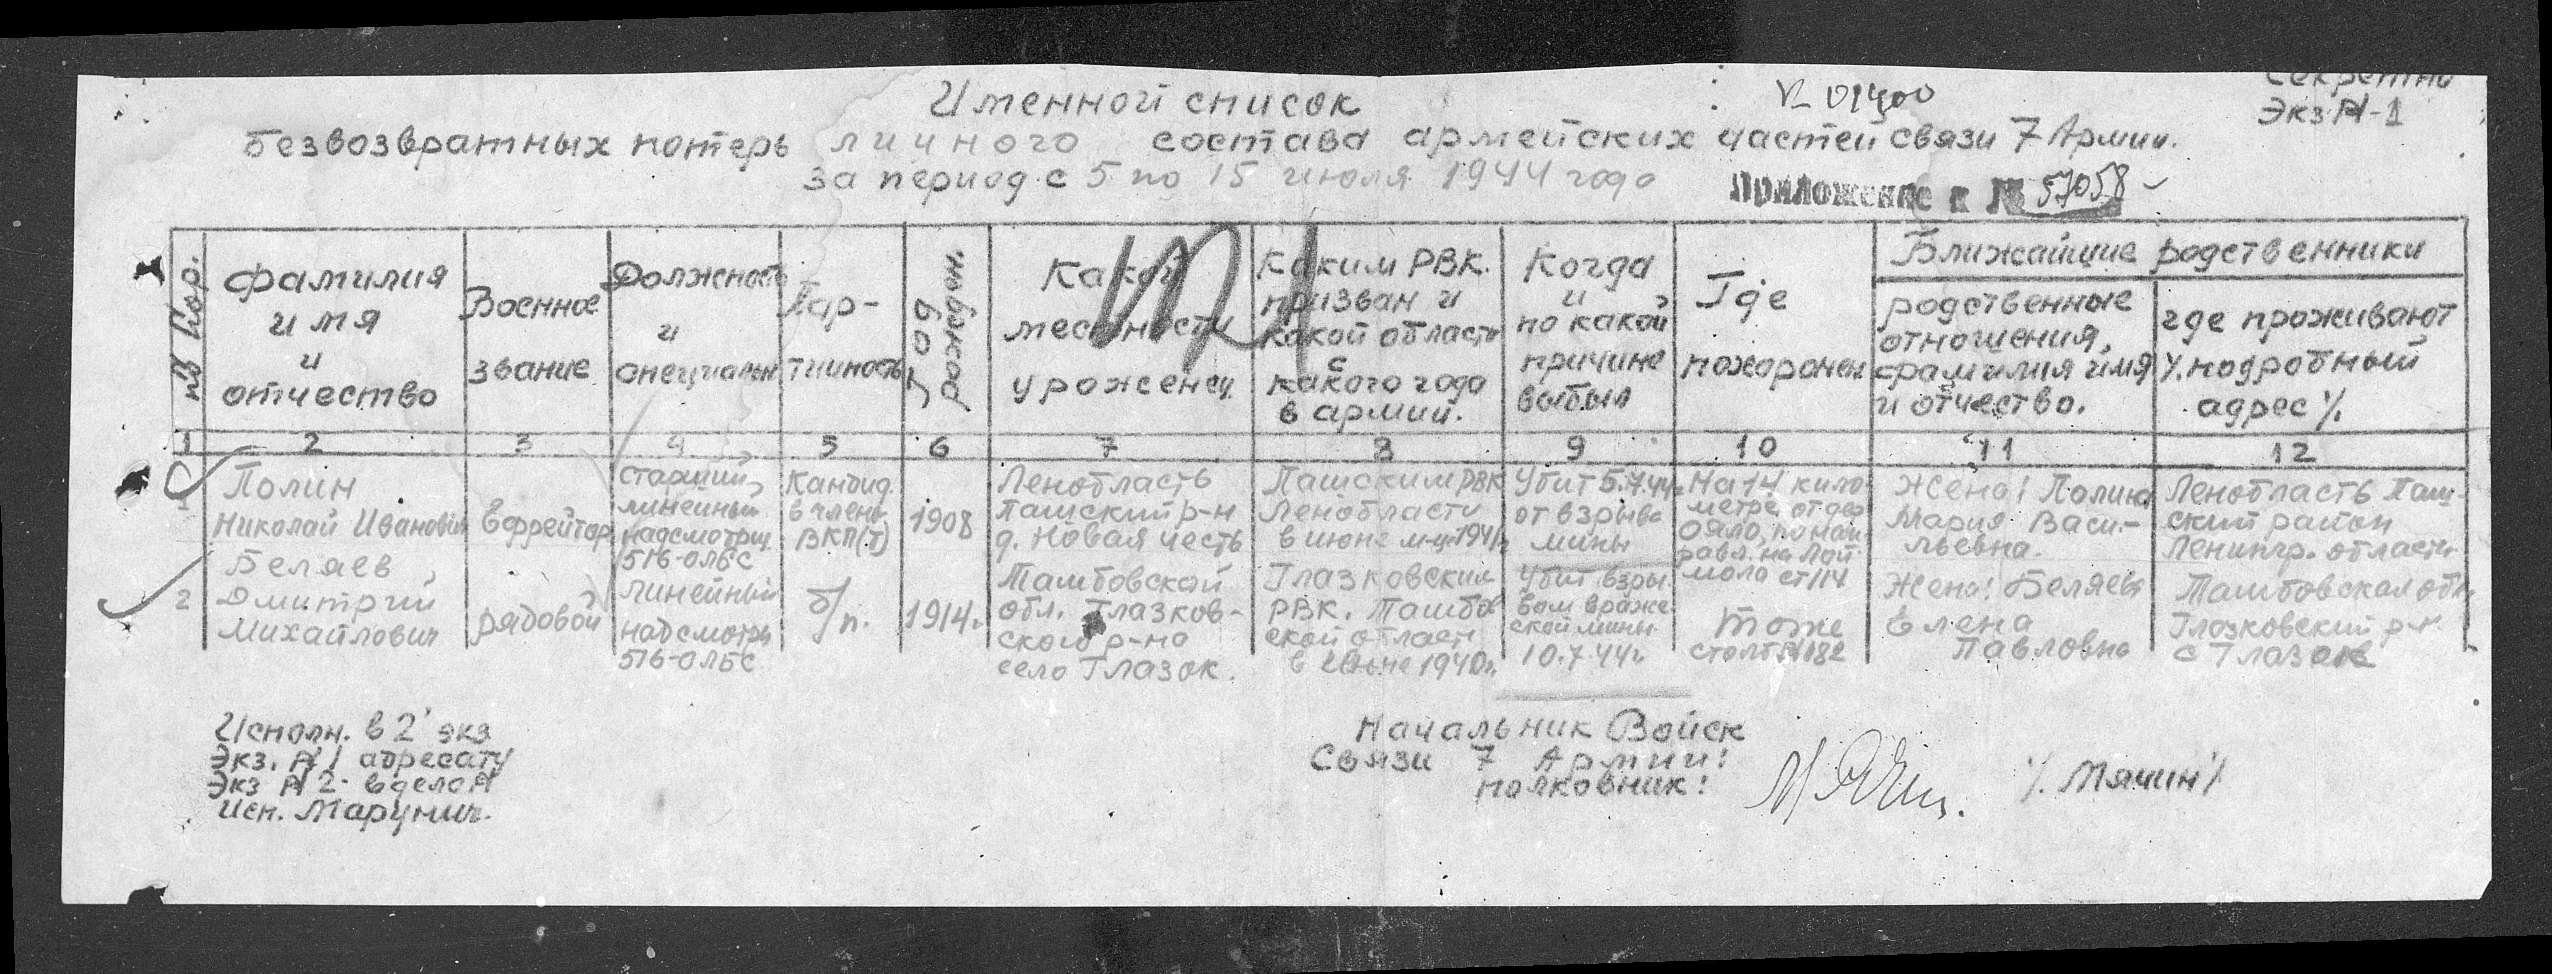 Секретно
Экз №-1
№ 01400
Именной список
безвозвратных потерь личного состава армейских частей связи 7 Армии.
за период с 5 по 15 июля 1944 года
Приложение к № 57058
№ по пор.
Фамилия
имя
и
отчество
Военное
звание
Должность
и
специальн
Пар-
тийность
Год
рожден.
Какой
местности
уроженец
Каким РВК.
призван и
какой области
с
какого года
в армии.
Когда
и
по какой
причине
выбыл
Где
похоронен
Ближайшие родственники
родственные
отношения,
фамилия имя
и отчество.
где проживают
%подробный
адрес%
1 2 3 4 5 6 7 8 9 10 11 12
1
Полин
Николай Иванович
Ефрейтор
старший
линейный
надсмотрщ.
516-ОЛБС
Кандид.
в члены
ВКП(б)
1908
Ленобласть
Пашский р-н
д. Новая честь
Пашским РВК
Ленобласти
в июне м-це 1941г.
Убит 5.7.44г.
от взрыва
мины
На 14 кило-
метре, от дер
по нап-
равл. на Лой-
мола ст 114
Жена: Полина
Мария Васи-
льевна.
Ленобласть Паш-
ский район
Ленингр. области
2
Беляев
Дмитрий
Михайлович
рядовой
линейный
надсмотрщ
516-ОЛБС
б/п.
1914г.
Тамбовской
обл. Глазков-
ской р-на
село Глазок.
Глазковским
РВК. Тамбов
ской област
в июне 1940г.
Убит взры-
вом враже
ской мины
10.7.44г.
тоже
столб №182
Жена: Беляева
Елена
Павловна
Тамбовская обл.
Глазковский р-н.
с Глазок
Исполн. в 2 экз
Экз. №1 адресату
Экз №2- в дело
Исп. Марунич.
Начальник Войск
Связи 7 Армии:
полковник:
%. Мячин%